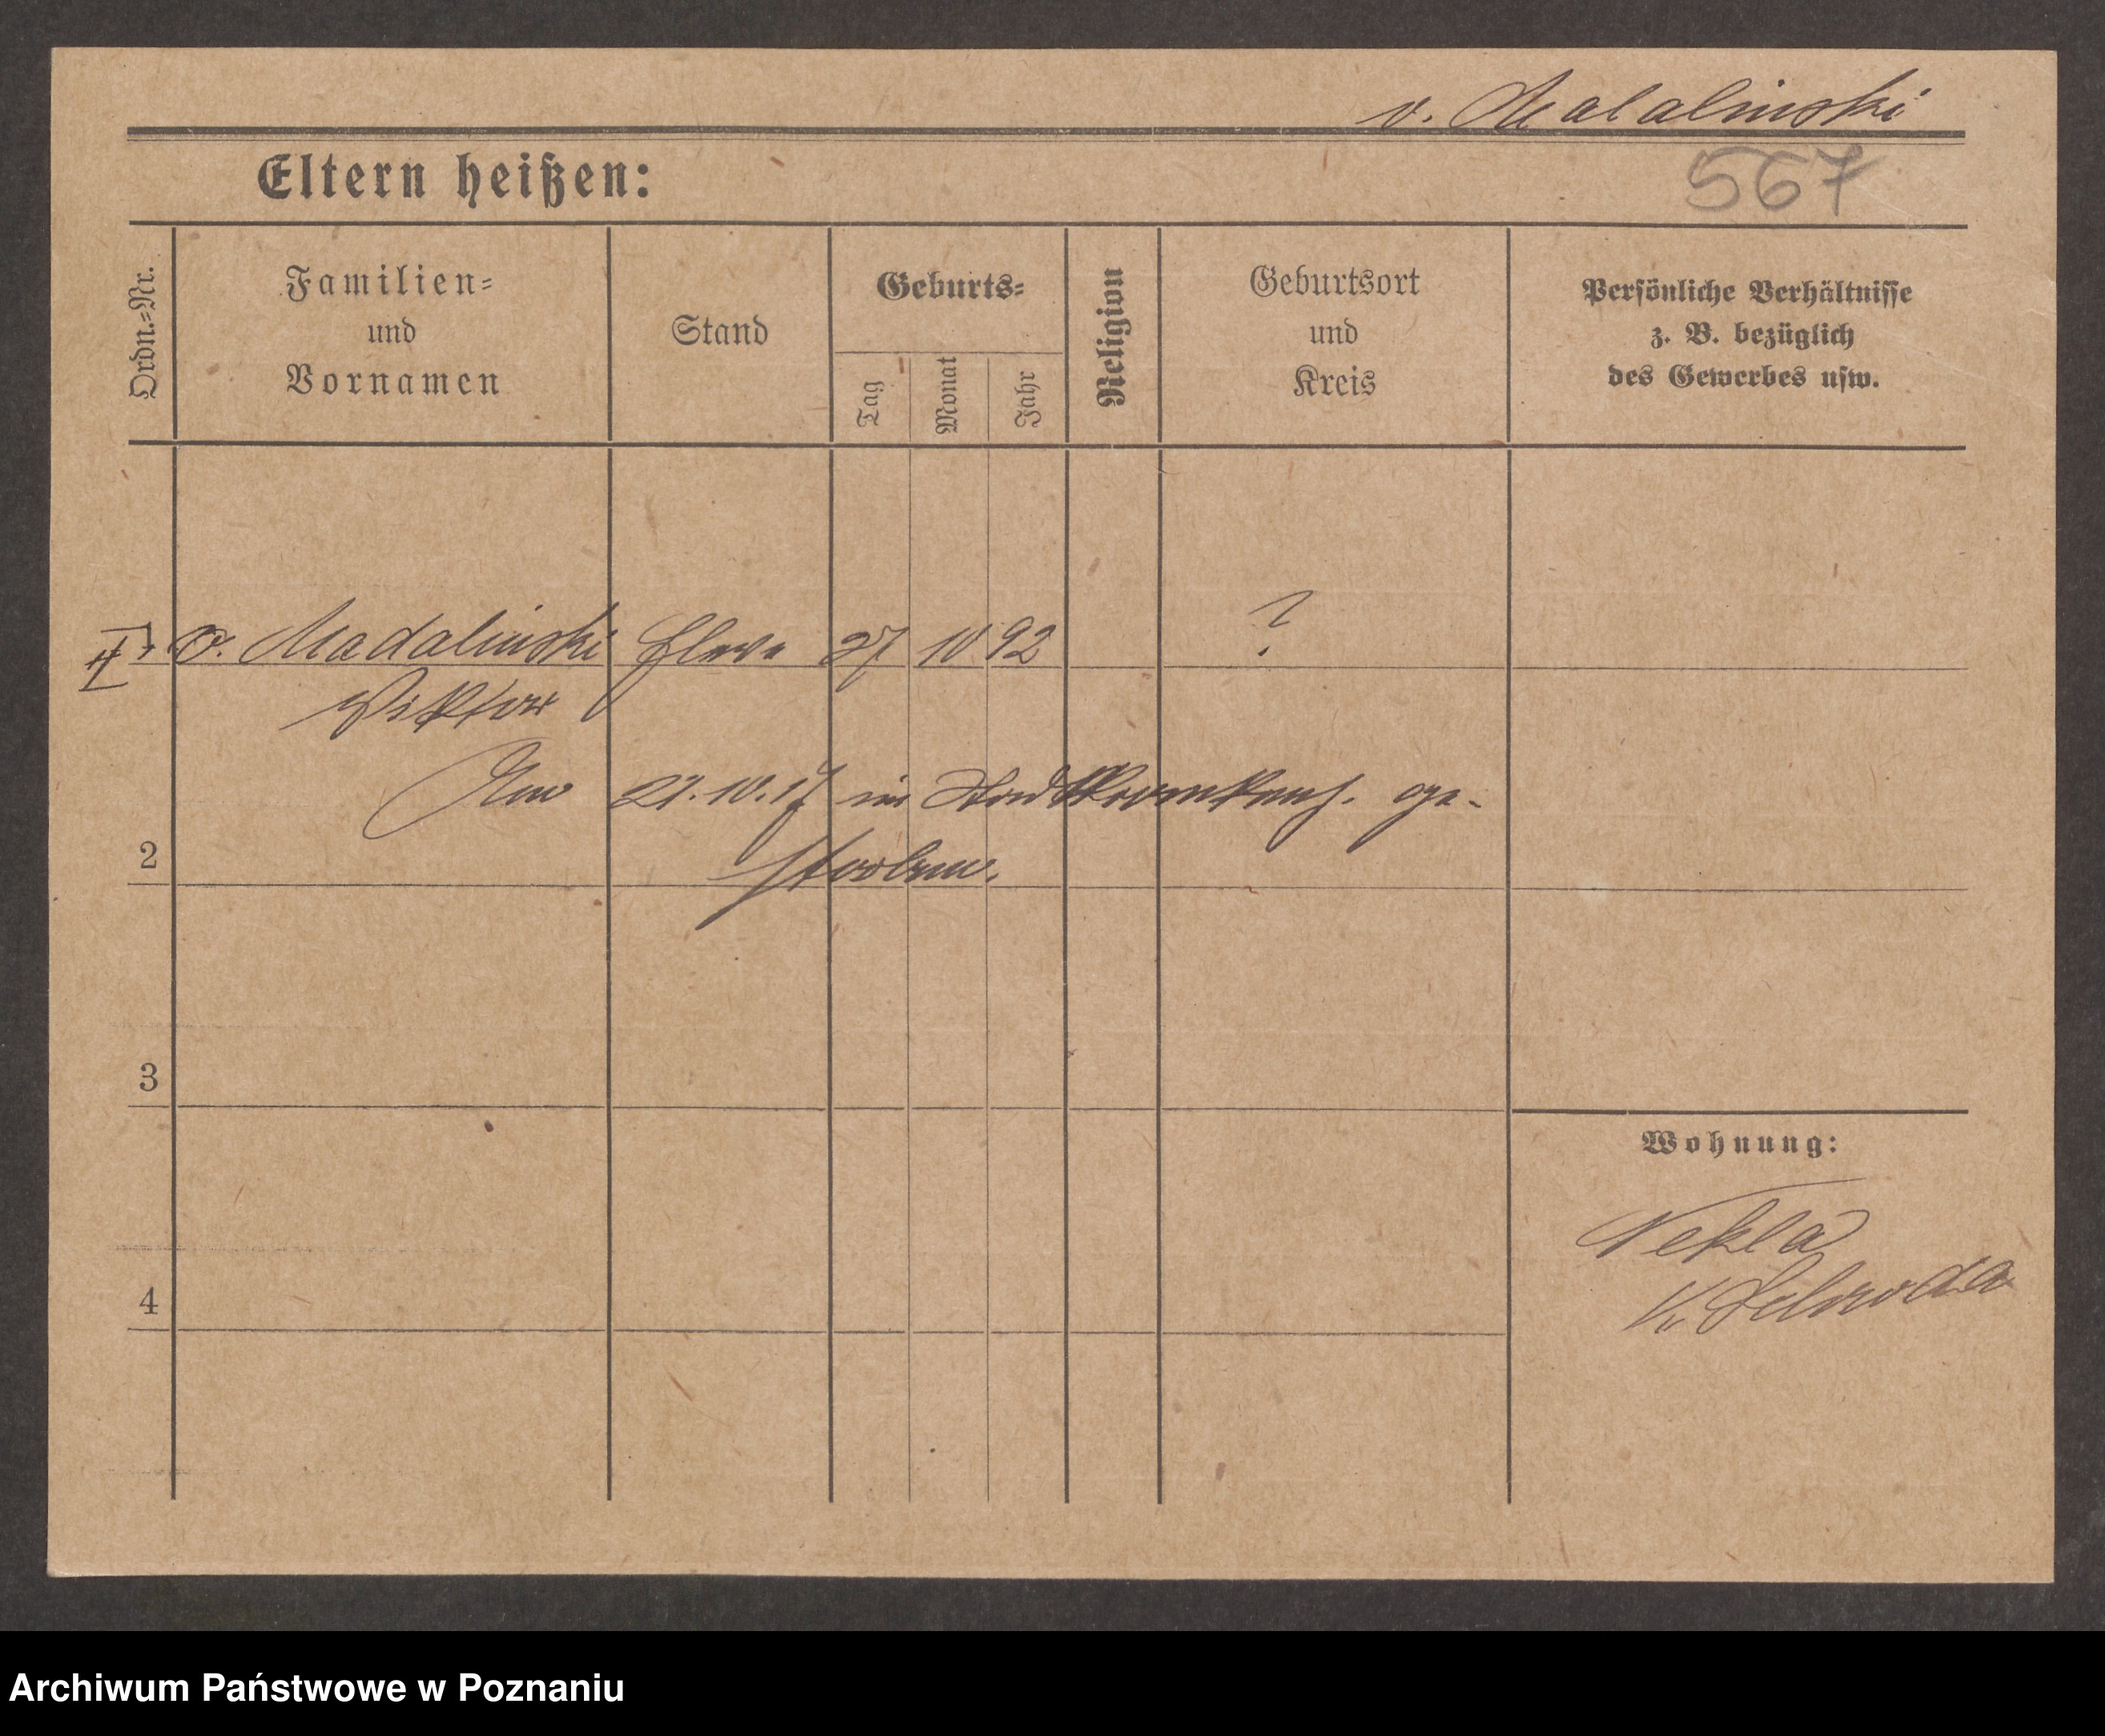 v. Madalinski
Eltern heißen:
567
Ordn.=Nr.
Familien=
und
Vornamen
Stand
Geburts=
Tag
Monat
Jahr
Religion
Geburtsort
und
Kreis
Persönliche Verhältnisse
z. B. bezüglich
des Gewerbes usw.
v. Madalinski 27 10 92 ?
Viktor
Am 21.10.17 im Stadtkrankenh. ge-
storben.
2
3
4
Wohnung:
Nekla
K. Schroda
Archiwum Państwowe w Poznaniu